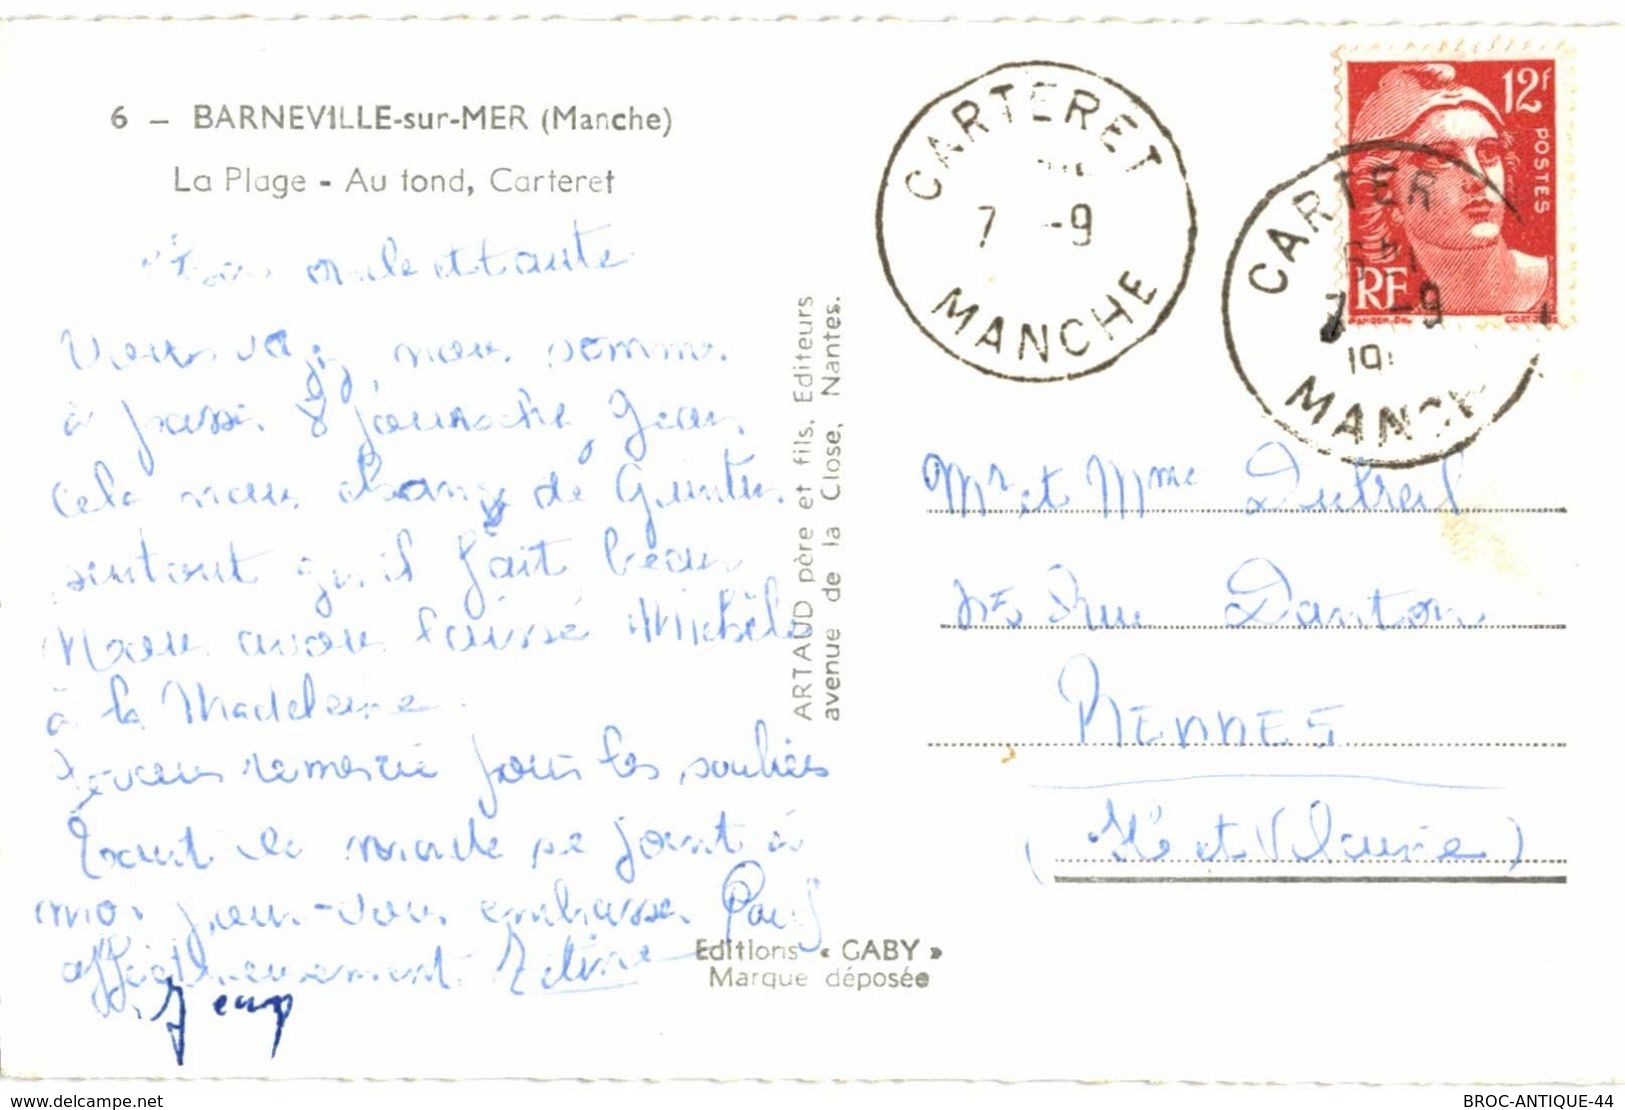 6 – BARNEVILLE-sur-MER (Manche)
La Plage - Au fond, Carteret
oncle et tante
Vous voyez, nous somme
à passé 8 jours che Jean
Cela nous change de
surtout qu'il fait beau
Nous avons laissé Michèle
à la Madeleine.
remercie pour les souliers
Tout le monde se joint à
moi pour vous embrasser Paul
affectueusement
Jean
ARTAUD père et fils, Editeurs
avenue de la Close, Nantes.
Editions « GABY »
Marque déposée
CARTERET
7 -9
MANCHE
12f
POSTES
RF
CARTER
7 -9
MANC
Mr et Mme Dutreil
Rue Danton
RENNES
(Ile et Vilaine)
delcampe.net
BROC-ANTIQUE-44